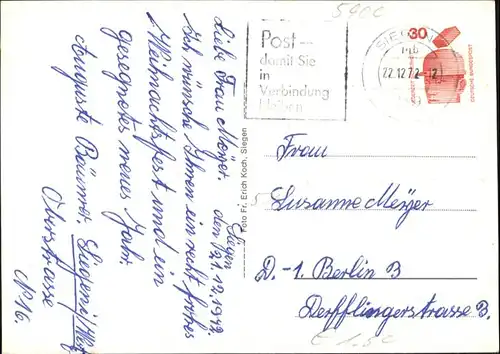 5900
Siegen, den 21.12.1972.
Liebe Frau Meyer.
Ich wünsche Ihnen ein recht frohes
Weihnachtsfest und ein
gesegnetes neues Jahr.
Auguste Bäumer.
Siegen/Westf
Oberstrasse
No 16.
Foto Fr. Erich Koch, Siegen
Post –
damit Sie
in
Verbindung
bleiben
SIEGEN
22.12.72-12
30
DEUTSCHE BUNDESPOST
Frau
Susanne Meyer
D.-1 Berlin 3
Derfflingerstrasse 3.